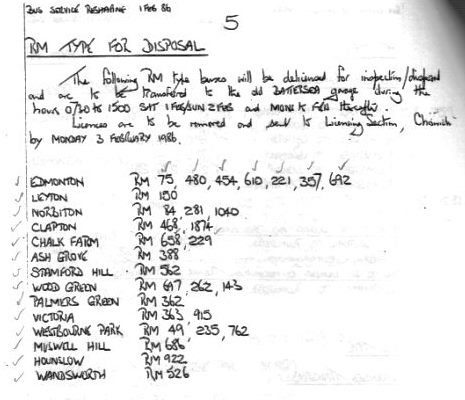 BUS SERVICE RESHAPING 1 FEB 86
5
RM TYPE FOR DISPOSAL
The following RM type buses will be delicensed for inspection/disposal
and are to be transferred to the old BATTERSEA garage during the
hours 0730 to 1500 SAT 1 FEB/SUN 2 FEB and MON 10 FEB
Licences are to be removed and sent to Licensing Section, Chiswick
by MONDAY 3 FEBRUARY 1986.
EDMONTON RM 75, 480, 454, 610, 221, 357, 692
LEYTON RM 150
NORBITON RM 84, 281, 1040
CLAPTON RM 468, 1874
CHALK FARM RM 658, 229
ASH GROVE RM 388
STAMFORD HILL RM 562
WOOD GREEN RM 697, 262, 143
PALMERS GREEN RM 362
VICTORIA RM 363, 915
WESTBOURNE PARK RM 49, 235, 762
MUSWELL HILL RM 686
HOUNSLOW RM 922
WANDSWORTH RM 526